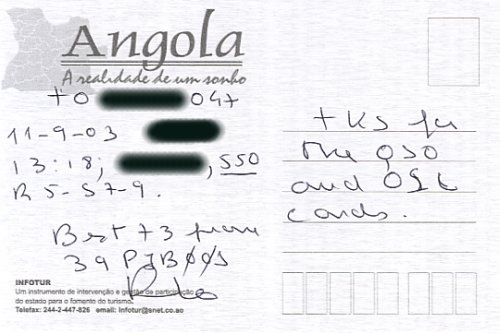 Angola
A realidade de um sonho
to
11-9-03
13:18;
R 5-57-9.
Best 73 from
INFOTUR
Um instrumento de intervenção e gestão de participação
do estado para o fomento do turismo.
Telefax: 244-2-447-826 email: infotur@snet.co.ao
tks for
the QSO
and QSL
cards.